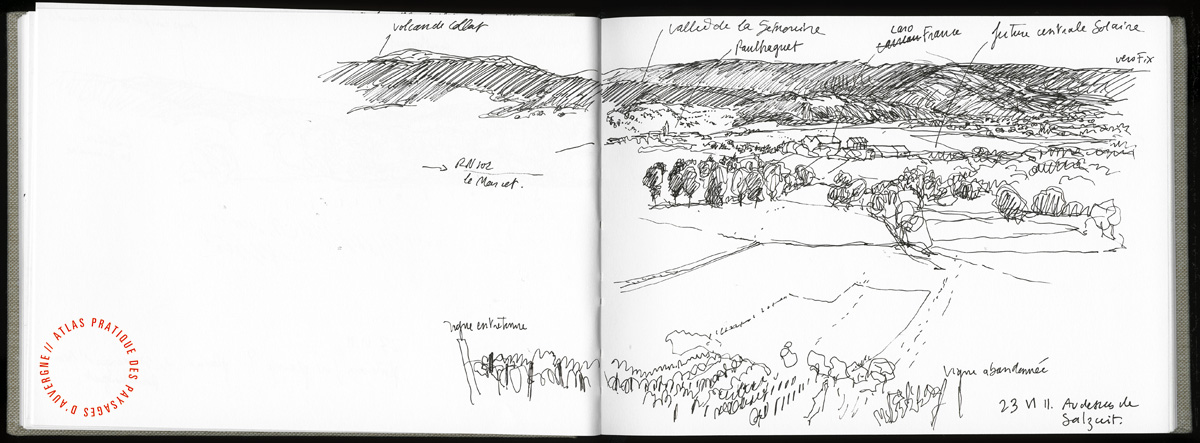 volcan de Collat
vallée de la Senouire
Paulhaguet
Caso
France
future centrale Solaire
vers Fix
→ RN 102
le Marcet.
vigne entretenue
vigne abandonnée
23 VI 11. Au dessus de
Salzuit.
// ATLAS PRATIQUE DES PAYSAGES D'AUVERGNE